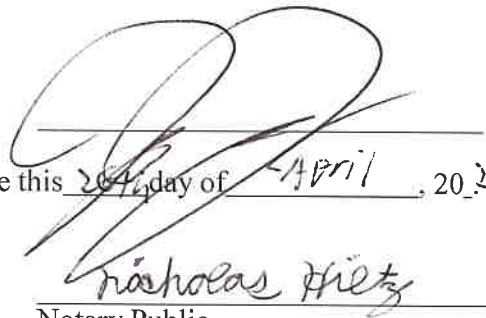 e this 26th day of April, 20
Nicholas Hiltz
Notary Public